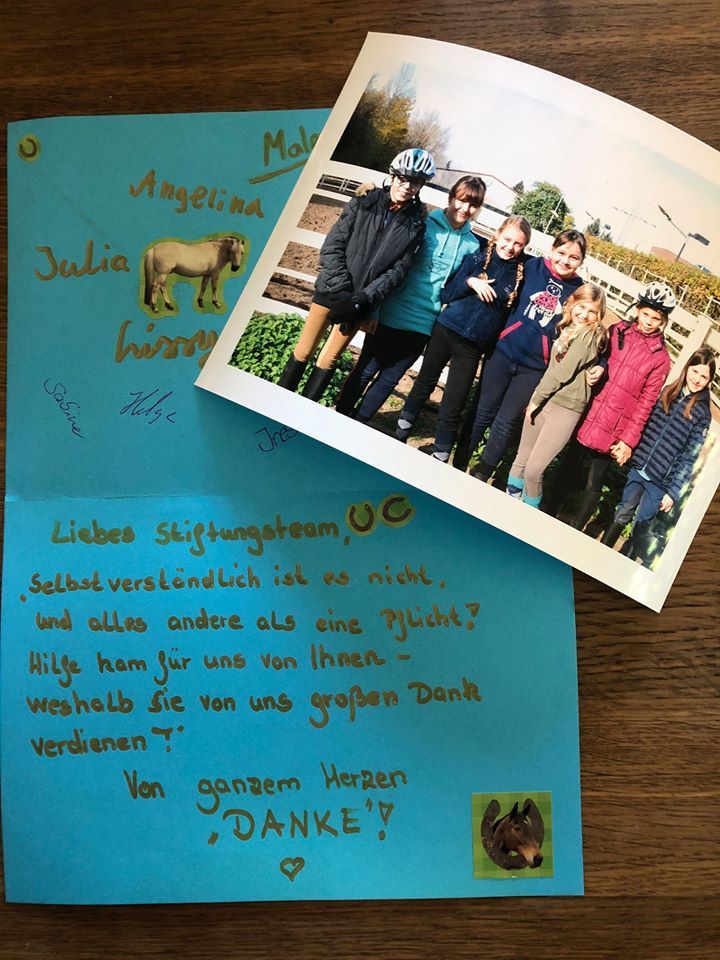 Angelina
Julia
Lissy
Sabine
Helge
Liebes Stiftungsteam,
„Selbstverständlich ist es nicht,
und alles andere als eine Pflicht!
Hilfe kam für uns von Ihnen –
weshalb Sie von uns großen Dank
verdienen!“
Von ganzem Herzen
„DANKE“!